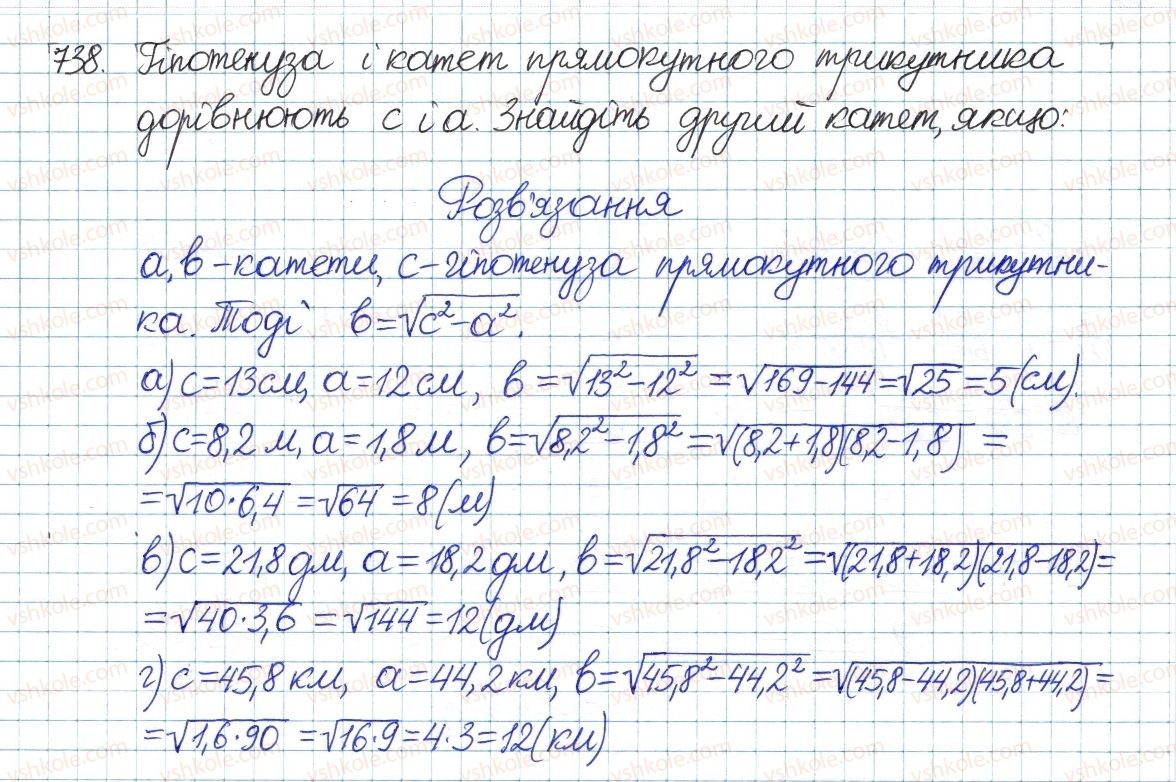 738. Гіпотенуза і катет прямокутного трикутника
дорівнюють c і a. Знайдіть другий катет, якщо:
Розв'язання
a, b - катети, c - гіпотенуза прямокутного трикутни-
ка. Тоді b = √(c² - a²).
а) c = 13 см, a = 12 см, b = √(13² - 12²) = √(169 - 144) = √25 = 5 (см).
б) c = 8,2 м, a = 1,8 м, b = √(8,2² - 1,8²) = √((8,2 + 1,8)(8,2 - 1,8)) =
= √(10 · 6,4) = √64 = 8 (м)
в) c = 21,8 дм, a = 18,2 дм, b = √(21,8² - 18,2²) = √((21,8 + 18,2)(21,8 - 18,2)) =
= √(40 · 3,6) = √144 = 12 (дм)
г) c = 45,8 км, a = 44,2 км, b = √(45,8² - 44,2²) = √((45,8 - 44,2)(45,8 + 44,2)) =
= √(1,6 · 90) = √(16 · 9) = 4 · 3 = 12 (км)